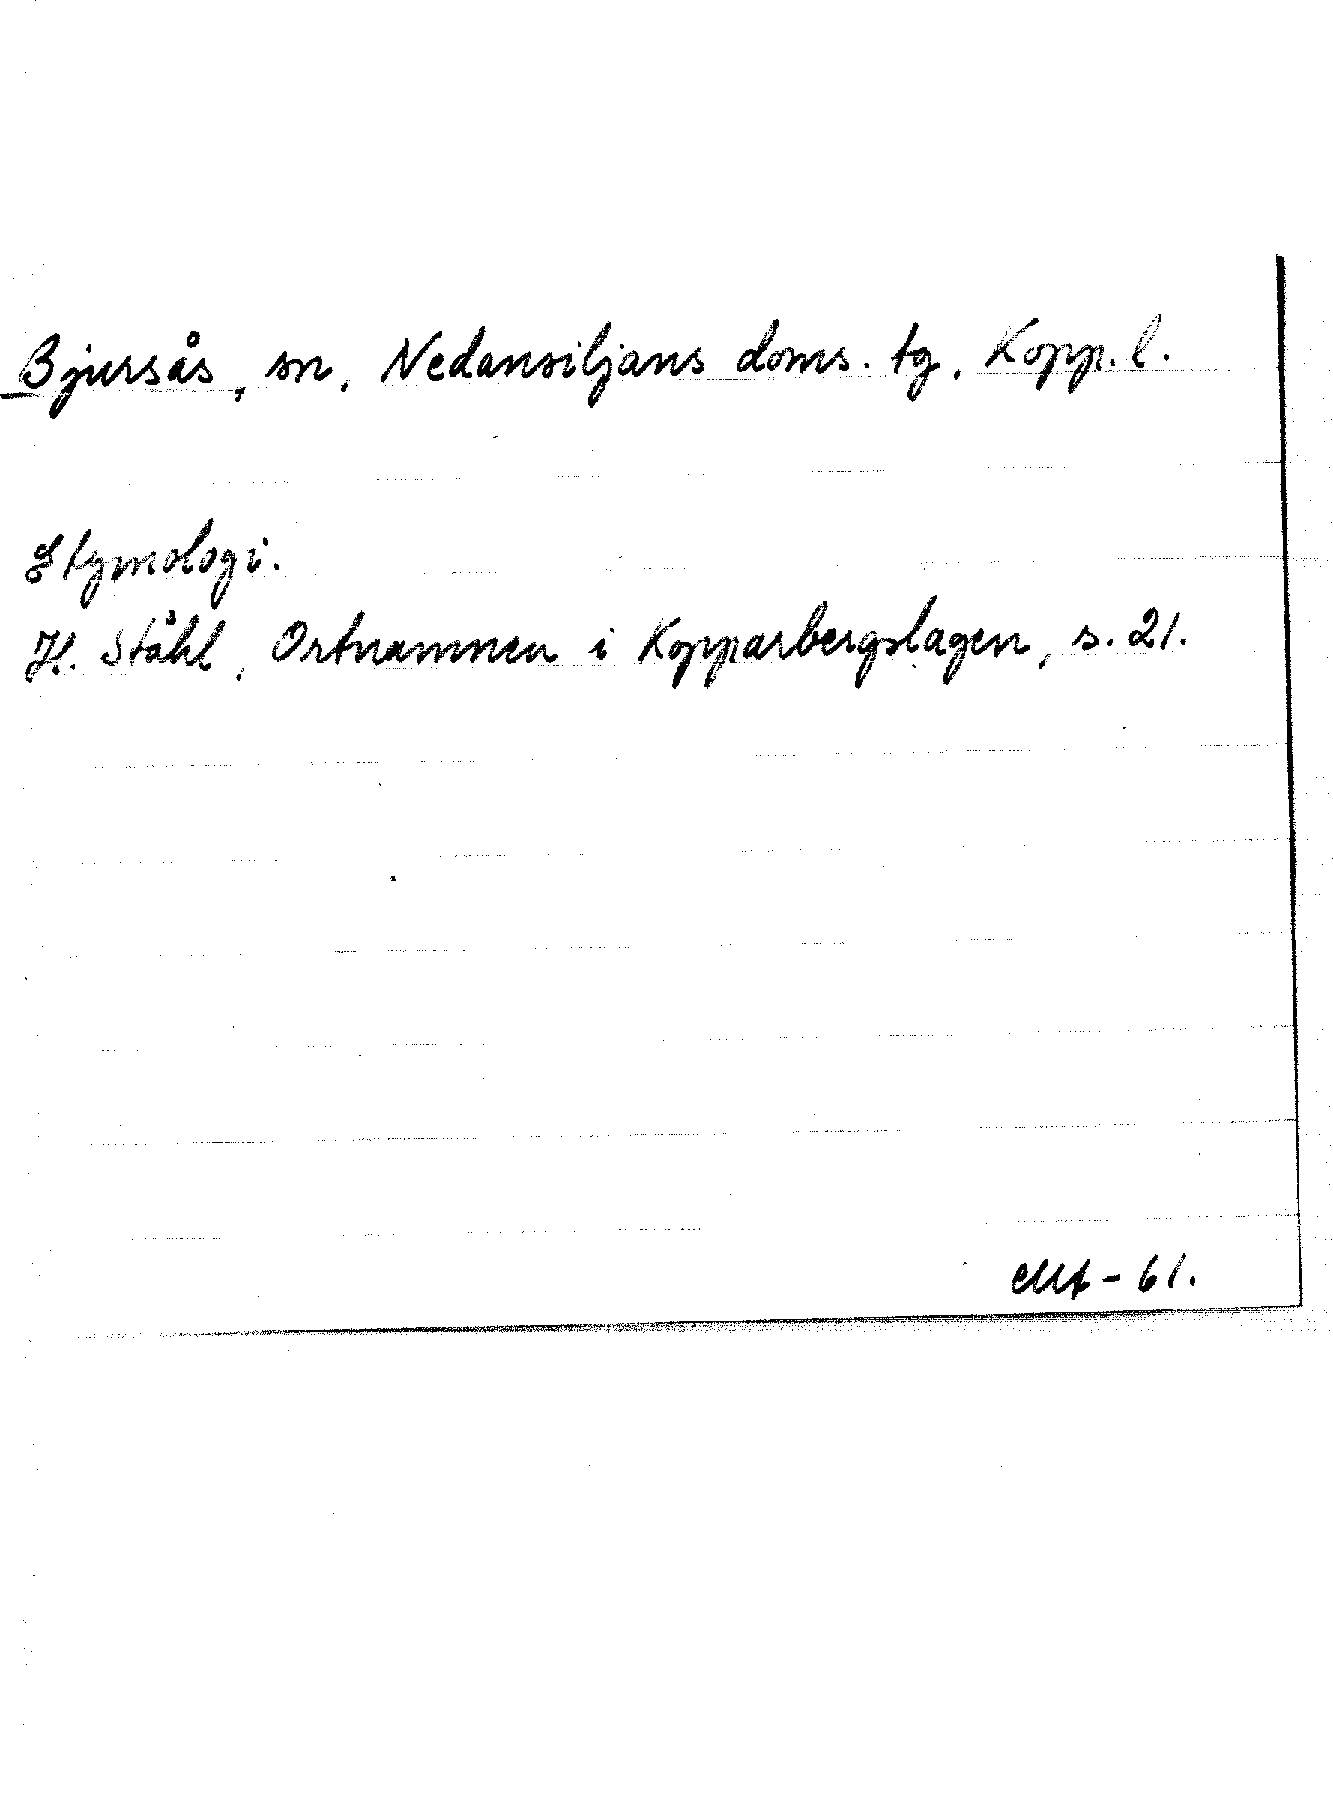 Bjursås, sn, Nedansiljans doms. tg, Kopp. l.
Etymologi.
H. Ståhl, Ortnamnen i Kopparbergslagen, s. 21.
-61.